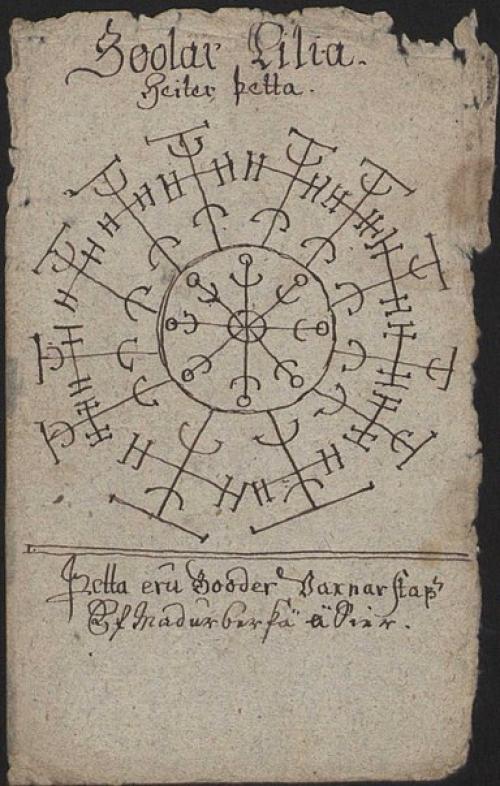 Soolar Lilia.
Heiter þetta.
Þetta eru Gooder Varnar stap
Ef Madur ber þä ä Sier.